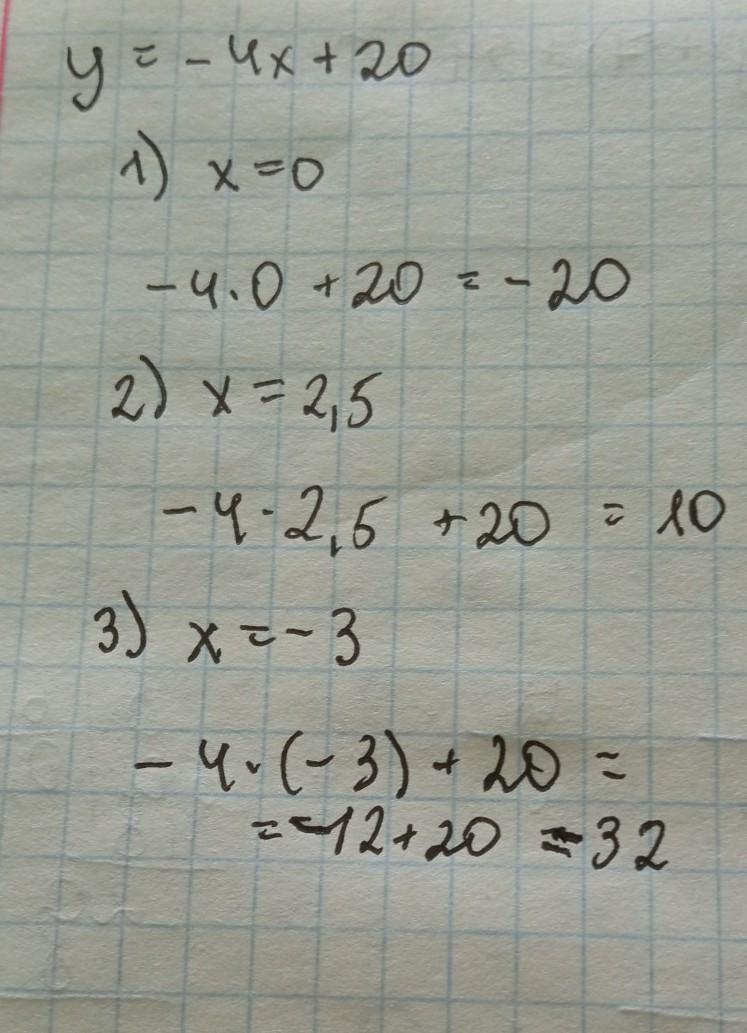 y = -4x + 20
1) x = 0
-4·0 + 20 = -20
2) x = 2,5
-4·2,5 + 20 = 10
3) x = -3
-4·(-3) + 20 =
= -12 + 20 = 32